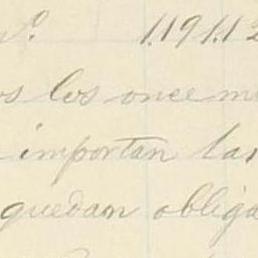 1.191.12
os los once me
importan las
quedan obliga